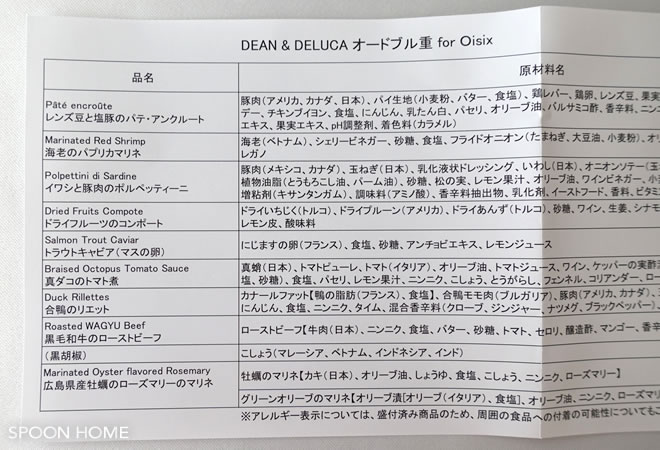 DEAN & DELUCA オードブル重 for Oisix
品名
原材料名
Pâté encroûte
レンズ豆と塩豚のパテ・アンクルート
豚肉(アメリカ、カナダ、日本)、パイ生地(小麦粉、バター、食塩)、鶏レバー、鶏卵、レンズ豆、果実
デー、チキンブイヨン、食塩、にんじん、乳たん白、パセリ、オリーブ油、バルサミコ酢、香辛料、ニン
エキス、果実エキス、pH調整剤、着色料(カラメル)
Marinated Red Shrimp
海老のパプリカマリネ
海老(ベトナム)、シェリービネガー、砂糖、食塩、フライドオニオン(たまねぎ、大豆油、小麦粉)、オリ
レガノ
Polpettini di Sardine
イワシと豚肉のポルペッティーニ
豚肉(メキシコ、カナダ)、玉ねぎ(日本)、乳化液状ドレッシング、いわし(日本)、オニオンソテー(
植物油脂(とうもろこし油、パーム油)、砂糖、松の実、レモン果汁、オリーブ油、ワインビネガー、
増粘剤(キサンタンガム)、調味料(アミノ酸)、香辛料抽出物、乳化剤、イーストフード、香料、ビタミ
Dried Fruits Compote
ドライフルーツのコンポート
ドライいちじく(トルコ)、ドライプルーン(アメリカ)、ドライあんず(トルコ)、砂糖、ワイン、生姜、シナモ
レモン皮、酸味料
Salmon Trout Caviar
トラウトキャビア(マスの卵)
にじますの卵(フランス)、食塩、砂糖、アンチョビエキス、レモンジュース
Braised Octopus Tomato Sauce
真ダコのトマト煮
真蛸(日本)、トマトピューレ、トマト(イタリア)、オリーブ油、トマトジュース、ワイン、ケッパーの実酢
塩、砂糖)、食塩、パセリ、レモン果汁、ニンニク、こしょう、とうがらし、フェンネル、コリアンダー、ロー
Duck Rillettes
合鴨のリエット
カナールファット【鴨の脂肪(フランス)、食塩】、合鴨モモ肉(ブルガリア)、豚肉(アメリカ、カナダ)、
にんじん、食塩、ニンニク、タイム、混合香辛料(クローブ、ジンジャー、ナツメグ、ブラックペッパー)、
Roasted WAGYU Beef
黒毛和牛のローストビーフ
ローストビーフ【牛肉(日本)、ニンニク、食塩、バター、砂糖、トマト、セロリ、醸造酢、マンゴー、香辛料
(黒胡椒)
こしょう(マレーシア、ベトナム、インドネシア、インド)
Marinated Oyster flavored Rosemary
広島県産牡蠣のローズマリーのマリネ
牡蠣のマリネ【カキ(日本)、オリーブ油、しょうゆ、食塩、こしょう、ニンニク、ローズマリー】
グリーンオリーブのマリネ【オリーブ漬[オリーブ(イタリア)、食塩]、オリーブ油、ニンニク、ローズマリ
※アレルギー表示については、盛付済み商品のため、周囲の食品への付着の可能性についても
SPOON HOME